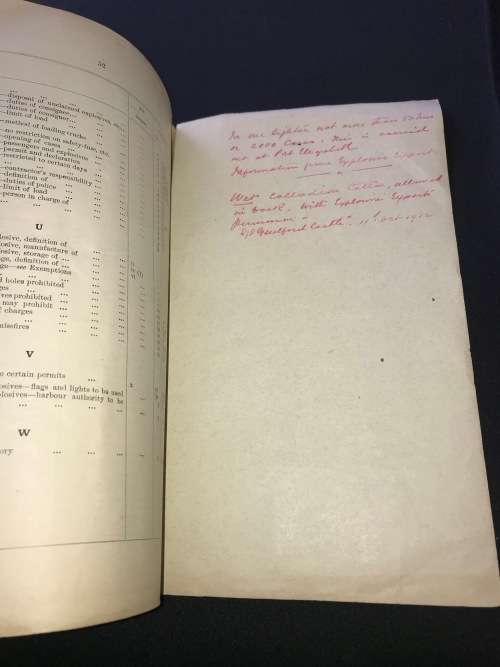 52
disposal of unclaimed explosives, etc.
—duties of consignee
—duties of consignor
—limit of load
—method of loading trucks
—no restriction on safety-fuse, etc.
—opening of cases
—passengers and explosives
—permit and declaration
—restricted to certain days
—contractor's responsibility
—definition of
—duties of police
—limit of load
—person in charge of
U
losive, definition of
losive, manufacture of
losive, storage of
definition of
see Exemptions
holes prohibited
ges
ves prohibited
may prohibit
charges
missfires
V
certain permits
osives—flags and lights to be used
plosives—harbour authority to be
W
ory
In one lighter not more than 50 tons
or 2000 Cases. This is carried
out at Port Elizabeth
Information from Explosives Expert
Wet Collodion Cotton, allowed
in Dock. With Explosives Experts
Permission
"Guildford Castle". 11th Oct. 1912